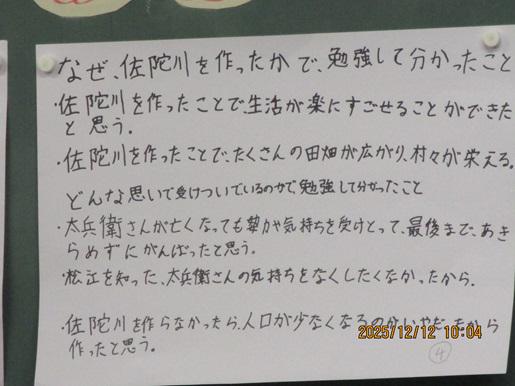 なぜ、佐陀川を作ったかで、勉強して分かったこと
・佐陀川を作ったことで、生活が楽にすごせることができた
と思う。
・佐陀川を作ったことで、たくさんの田畑が広がり、村々が栄える。
どんな思いで受けついでいるのかで勉強して分かったこと
・太兵衛さんが亡くなっても努力や気持ちを受けとって、最後まで、あき
らめずにがんばったと思う。
・松江を知った、太兵衛さんの気持ちをなくしたくなかったから、
・佐陀川を作らなかったら、人口が少なくなるのがいやだったから
作ったと思う。
2025/12/12 10:04
4